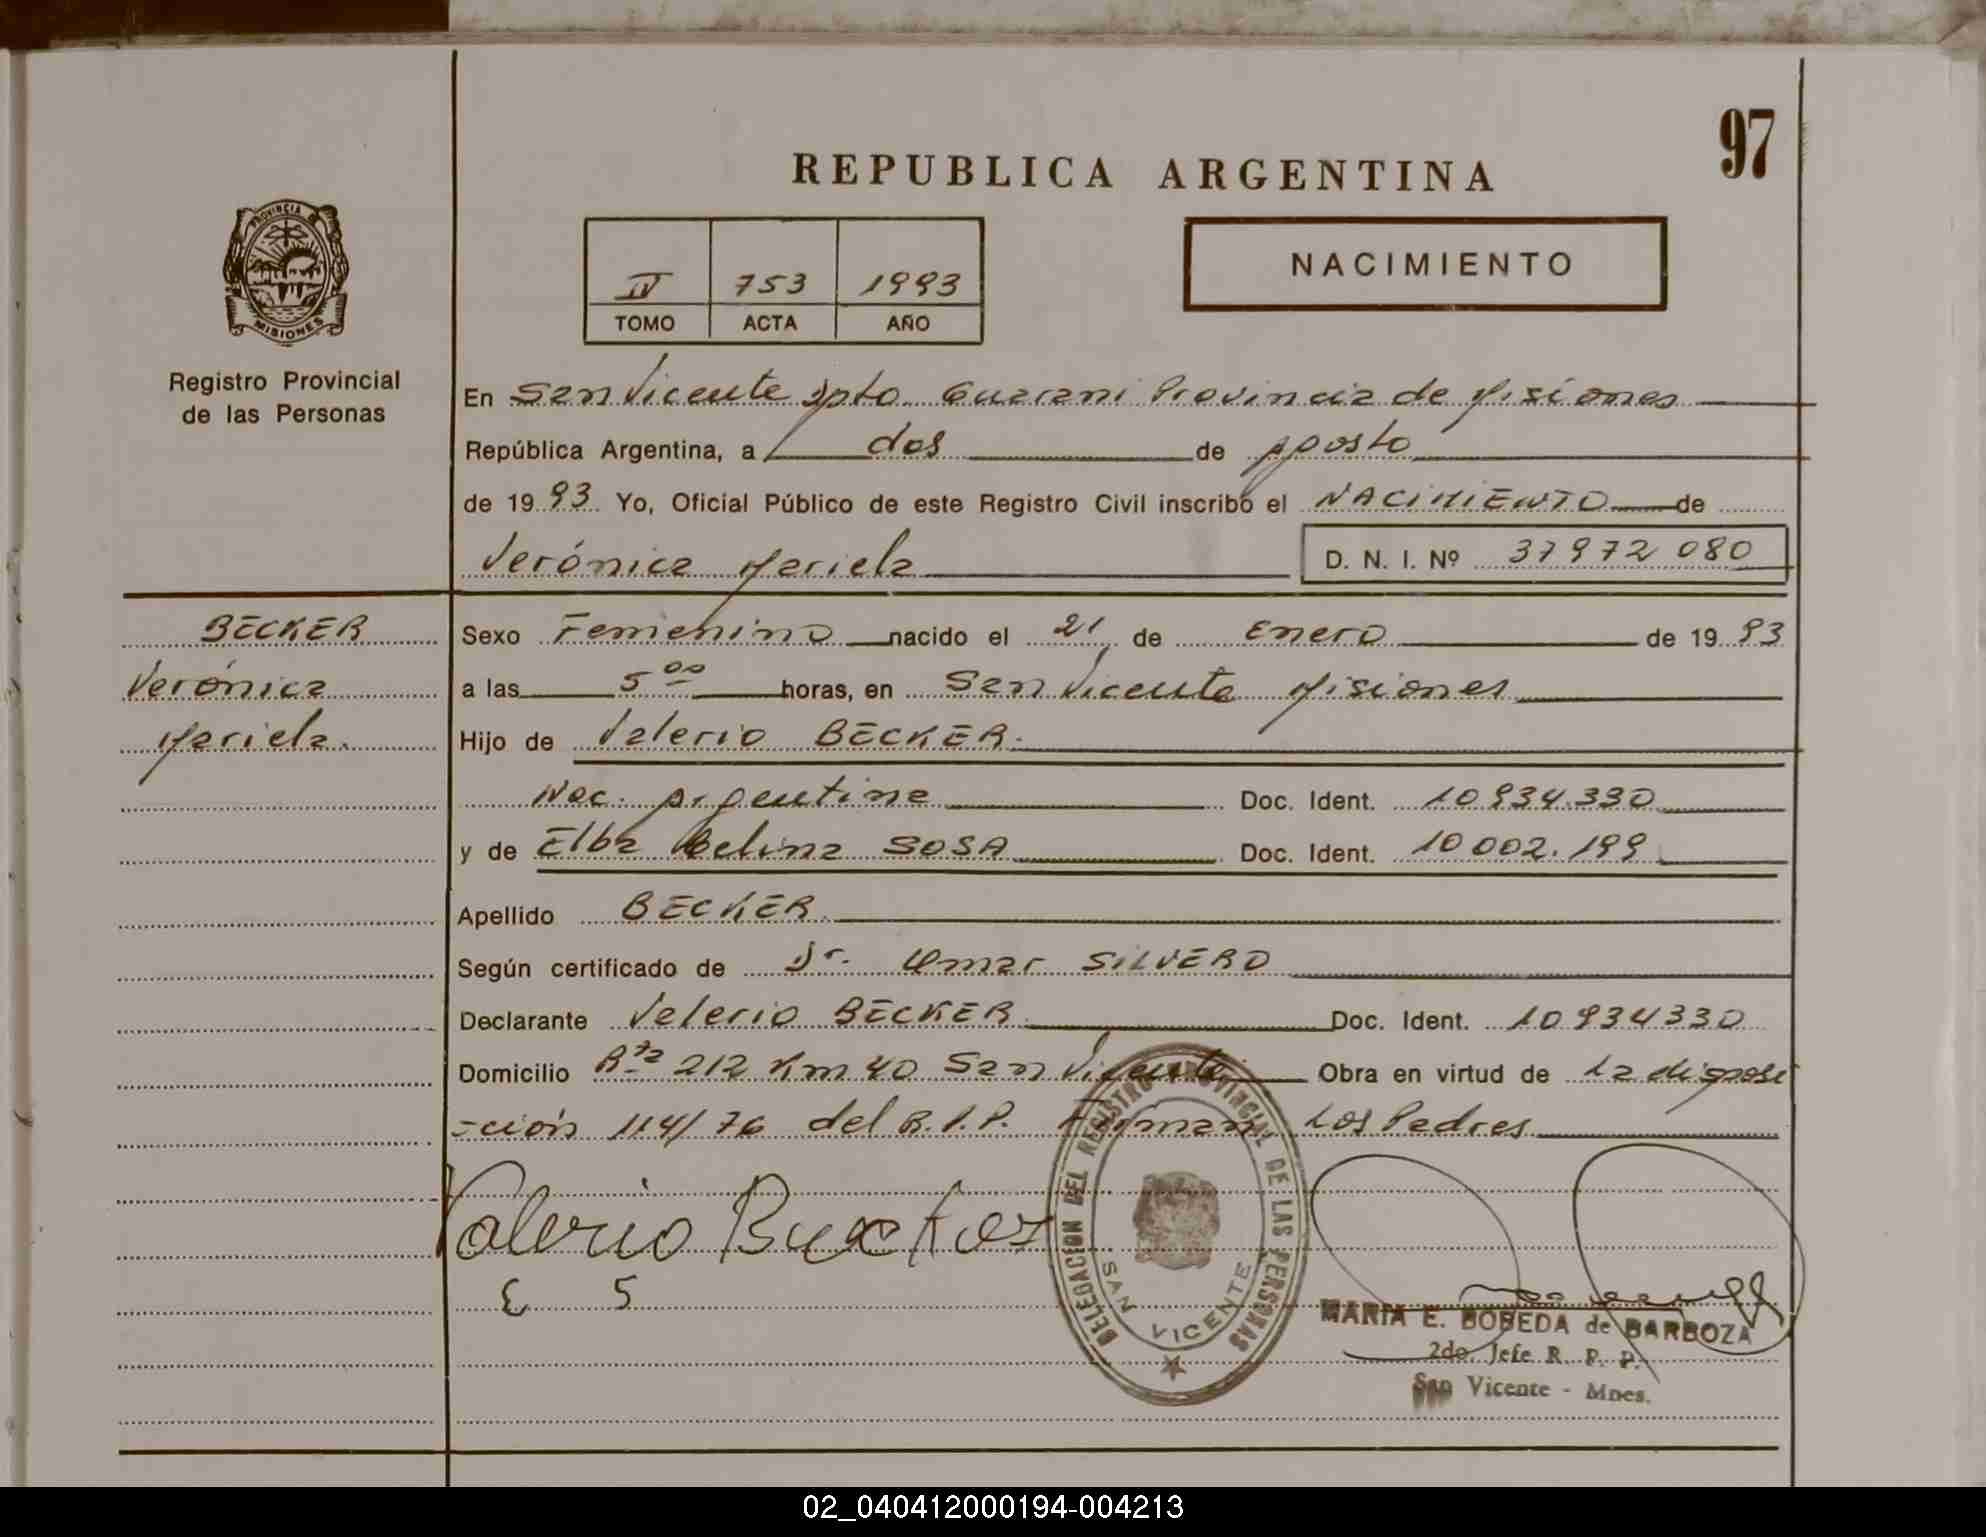 97
REPUBLICA ARGENTINA
PROVINCIA DE
MISIONES
Registro Provincial
de las Personas
NACIMIENTO
IV 753 1993
TOMO ACTA AÑO
En San Vicente Dpto Guarani Provincia de Misiones
República Argentina, a dos de Agosto
de 1993 Yo, Oficial Público de este Registro Civil inscribo el NACIMIENTO de
Verónica Mariela D. N. I. Nº 37972 080
BECKER
Verónica
Mariela.
Sexo Femenino nacido el 21 de Enero de 1993
a las 5 00 horas, en San Vicente Misiones
Hijo de Valerio BECKER.
Nac. Argentina Doc. Ident. 10934.330
y de Elba Celina SOSA Doc. Ident. 10 002.199
Apellido BECKER.
Según certificado de Dr. Omar SILVERO
Declarante Valerio BECKER. Doc. Ident. 10934330
Domicilio Rta 212 Km 40 San Vicente Obra en virtud de la disposi
-ción 114/76 del R.P.P. Firman Los Padres
Valerio
E S
DELEGACION DEL REGISTRO PROVINCIAL DE LAS PERSONAS
SAN VICENTE
MARIA E. BOBEDA de BARBOZA
2do. Jefe R. P. P.
San Vicente - Mnes.
02_040412000194-004213